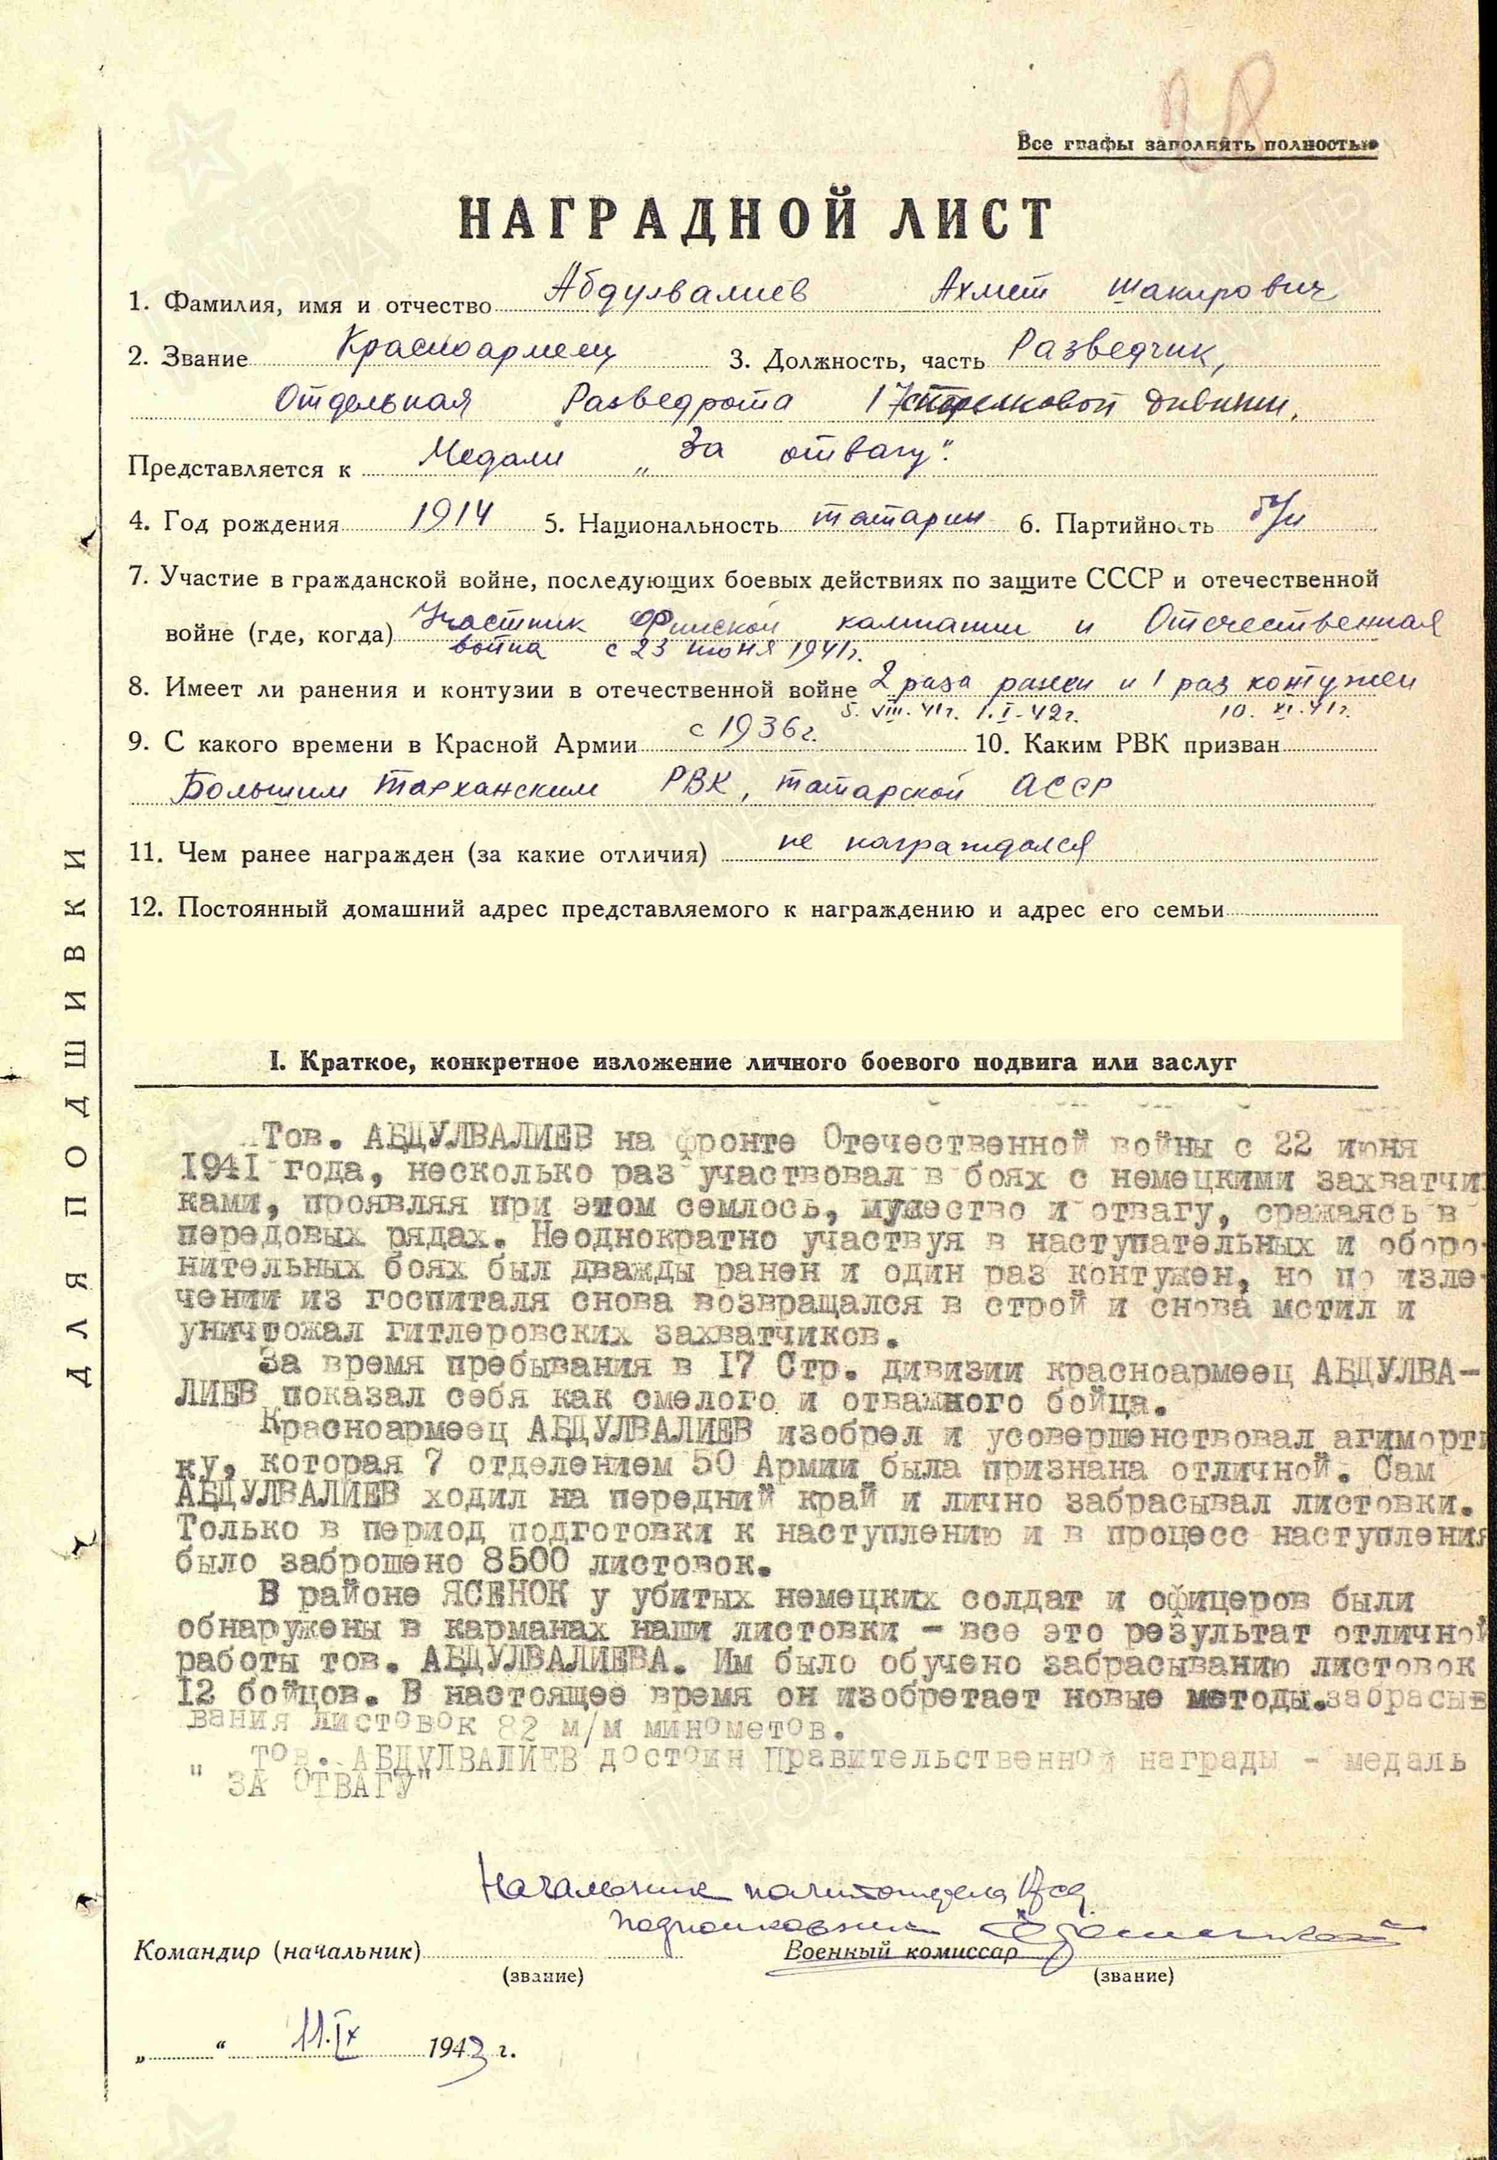 28
Все графы заполнять полностью
НАГРАДНОЙ ЛИСТ
1. Фамилия, имя и отчество Абдулвалиев Ахмет Шакирович
2. Звание Красноармеец 3. Должность, часть Разведчик,
Отдельная Разведрота 17 стрелковой дивизии.
Представляется к Медали „За отвагу".
4. Год рождения 1914 5. Национальность татарин 6. Партийность б/п
7. Участие в гражданской войне, последующих боевых действиях по защите СССР и отечественной
войне (где, когда) Участник Финской кампании и Отечественная
война с 23 июня 1941г.
8. Имеет ли ранения и контузии в отечественной войне 2 раза ранен и 1 раз контужен
5. VIII. 41г. 1. I-42г. 10. XI. 41г.
9. С какого времени в Красной Армии с 1936г. 10. Каким РВК призван
Большим Тарханским РВК, татарской АССР
11. Чем ранее награжден (за какие отличия) не награждался
12. Постоянный домашний адрес представляемого к награждению и адрес его семьи
I. Краткое, конкретное изложение личного боевого подвига или заслуг
Тов. АБДУЛВАЛИЕВ на фронте Отечественной войны с 22 июня
1941 года, несколько раз участвовал в боях с немецкими захватчи
ками, проявляя при этом семлось, мужество и отвагу, сражаясь в
передовых рядах. Неоднократно участвуя в наступательных и оборо-
нительных боях был дважды ранен и один раз контужен, но по изле-
чении из госпиталя снова возвращался в строй и снова мстил и
уничтожал гитлеровских захватчиков.
За время пребывания в 17 Стр. дивизии красноармеец АБДУЛВА-
ЛИЕВ показал себя как смелого и отважного бойца.
Красноармеец АБДУЛВАЛИЕВ изобрел и усовершенствовал агиморти
ку, которая 7 отделением 50 Армии была признана отличной. Сам
АБДУЛВАЛИЕВ ходил на передний край и лично забрасывал листовки.
Только в период подготовки к наступлению и в процесс наступления
было заброшено 8500 листовок.
В районе ЯСЕНОК у убитых немецких солдат и офицеров были
обнаружены в карманах наши листовки - все это результат отличной
работы тов. АБДУЛВАЛИЕВА. Им было обучено забрасыванию листовок
12 бойцов. В настоящее время он изобретает новые методы.забрасыв
вания листовок 82 м/м минометов.
Тов. АБДУЛВАЛИЕВ достоин Правительственной награды - медаль
" ЗА ОТВАГУ"
Начальник политотдела 17 сд
подполковник
Командир (начальник) Военный комиссар
(звание) (звание)
„ “ 11.IX 1943 г.
ДЛЯ ПОДШИВКИ